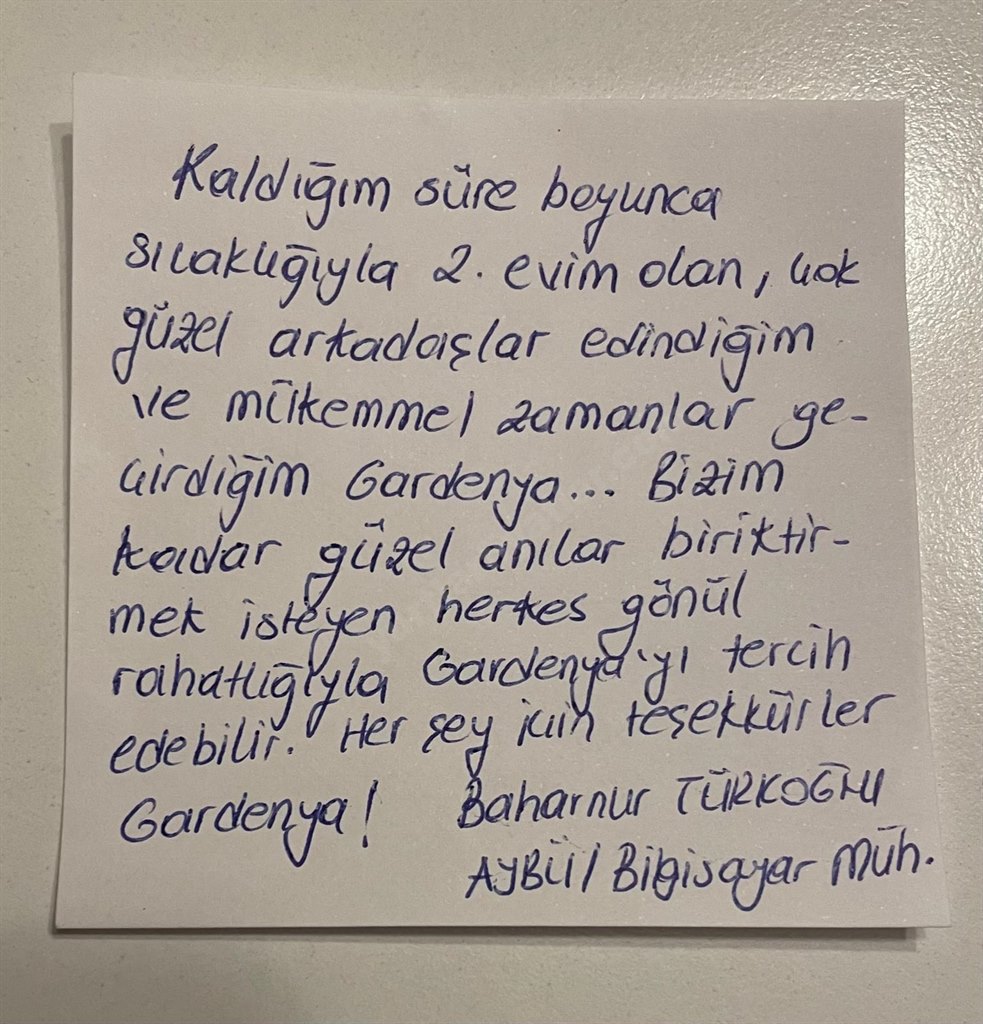 Kaldığım süre boyunca
sıcaklığıyla 2. evim olan, çok
güzel arkadaşlar edindiğim
ve mükemmel zamanlar ge-
çirdiğim Gardenya... Bizim
kadar güzel anılar biriktir-
mek isteyen herkes gönül
rahatlığıyla Gardenya'yı tercih
edebilir. Her şey için teşekkürler
Gardenya! Baharnur TÜRKOĞLU
AYBÜ/Bilgisayar Müh.